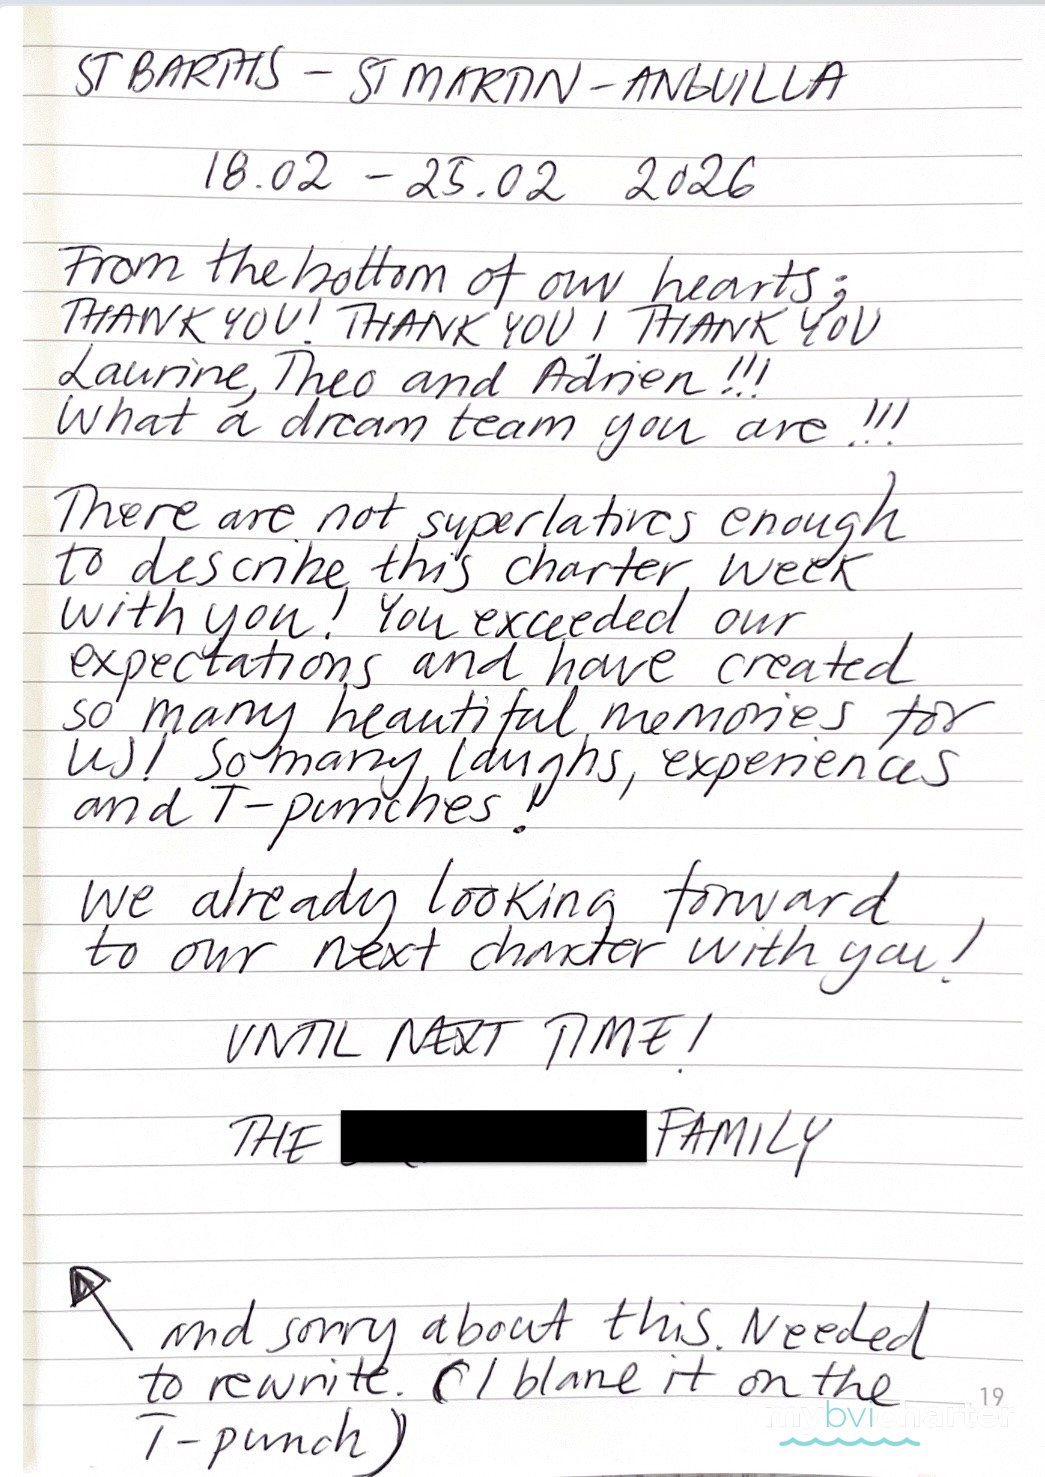 ST BARTHS – ST MARTIN – ANGUILLA
18.02 – 25.02 2026
From the bottom of our hearts;
THANK YOU! THANK YOU! THANK YOU
Laurine, Theo and Adrien!!!
What a dream team you are!!!
There are not superlatives enough
to describe this charter week
with you! You exceeded our
expectations and have created
so many beautiful memories for
us! So many laughs, experiences
and T-punches!
We already looking forward
to our next charter with you!
UNTIL NEXT TIME!
THE FAMILY
and sorry about this. Needed
to rewrite. (I blane it on the
T-punch)
19
mybvicharter